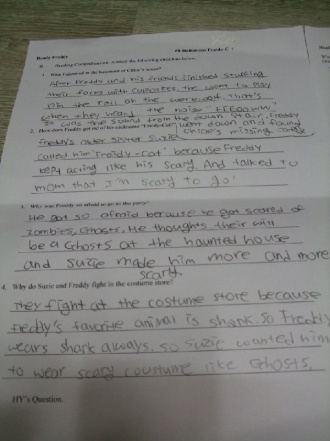 Ready Freddy
B. Reading Comprehension: Answer the following
1. What happened in the basement of Chloe's house?
After Freddy and his friends finished stuffing
their faces with cupcakes, the went to play
pin the tail on the
when they heard the noise
the sound from the down stair, freddy
went down and found
Chloe's missing
2. How does Freddy get rid of his nickname
freddy's older sister Suzie
called him because Freddy
kepy acting like his scary. And talked to
mom that I'm scary to go.
3. Why was Freddy so afraid to go to the party?
He got so afraid because he got scared of
zombies, Ghosts. He thoughts their will
be a Ghosts at the haunted house
and Suzie made him more and more
scary.
4. Why do Suzie and Freddy fight in the costume store?
They fight at the costume store because
freddy's favorite animal is shark. So Freddy
wears shark always. so Suzie wanted him
to wear scary coustume like Ghosts.
HY's Question.